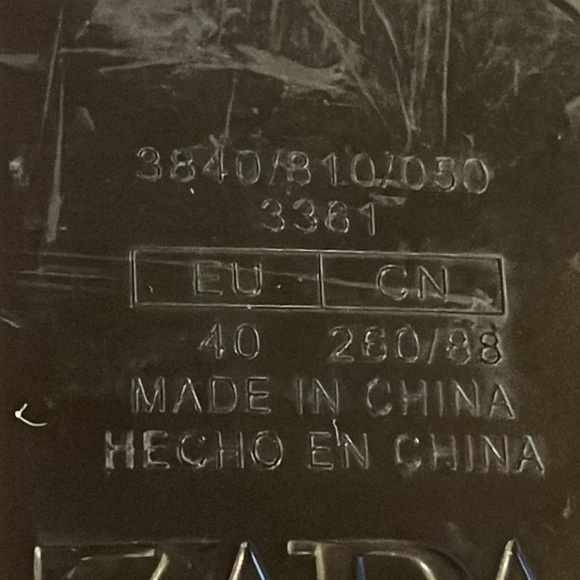 3840/810/050
3361
EU CN
40 260/88
MADE IN CHINA
HECHO EN CHINA
ZARA